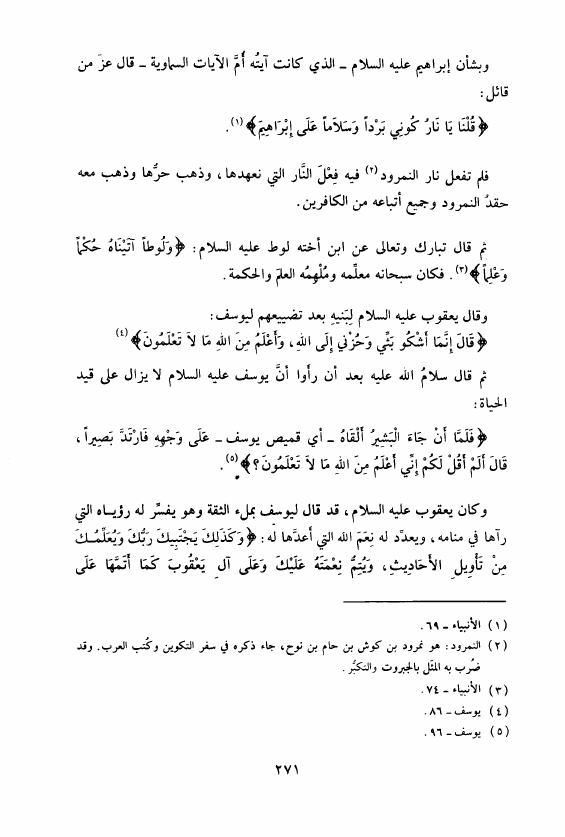 وبشأن إبراهيم عليه السلام – الذي كانت آيتُه أُمَّ الآيات السماوية – قال عزّ من
قائل:
﴿قُلْنَا يَا نَارُ كُونِي بَرْداً وَسَلَاماً عَلَى إِبْرَاهِيمَ﴾(١).
فلم تفعل نار النمرود(٢) فيه فِعْلَ النَّار التي نعهدها، وذهب حرُّها وذهب معه
حقدُ النمرود وجميع أتباعه من الكافرين.
ثم قال تبارك وتعالى عن ابن أخته لوط عليه السلام: ﴿وَلُوطاً آتَيْنَاهُ حُكْماً
وَعِلْماً﴾(٣). فكان سبحانه معلِّمه ومُلْهِمُه العلمَ والحكمة.
وقال يعقوب عليه السلام لِبَنيهِ بعد تضييعهم ليوسف:
﴿قَالَ إِنَّمَا أَشْكُو بَثِّي وَحُزْنِي إِلَى اللهِ، وَأَعْلَمُ مِنَ اللهِ مَا لاَ تَعْلَمُونَ﴾(٤)
ثم قال سلامُ الله عليه بعد أن رأوا أنَّ يوسف عليه السلام لا يزال على قيد
الحياة:
﴿فَلَمَّا أَنْ جَاءَ الْبَشِيرُ أَلْقَاهُ – أي قميص يوسف – عَلَى وَجْهِهِ فَارْتَدَّ بَصِيراً،
قَالَ أَلَمْ أَقُلْ لَكُمْ إِنِّي أَعْلَمُ مِنَ اللهِ مَا لاَ تَعْلَمُونَ؟﴾(٥).
وكان يعقوب عليه السلام، قد قال ليوسف بملء الثقة وهو يفسِّر له رؤياه التي
رآها في منامه، ويعدِّد له نِعَمَ الله التي أعدَّها له: ﴿وَكَذَلِكَ يَجْتَبِيكَ رَبُّكَ وَيُعَلِّمُكَ
مِنْ تَأْوِيلِ الأَحَادِيثِ، وَيُتِمُّ نِعْمَتَهُ عَلَيْكَ وَعَلَى آلِ يَعْقُوبَ كَمَا أَتَمَّهَا عَلَى
(١) الأنبياء – ٦٩.
(٢) النمرود: هو نمرود بن كوش بن حام بن نوح، جاء ذكره في سفر التكوين وكُتب العرب. وقد
ضُرب به المثَل بالجبروت والتكبُّر.
(٣) الأنبياء – ٧٤.
(٤) يوسف – ٨٦.
(٥) يوسف – ٩٦.
٢٧١